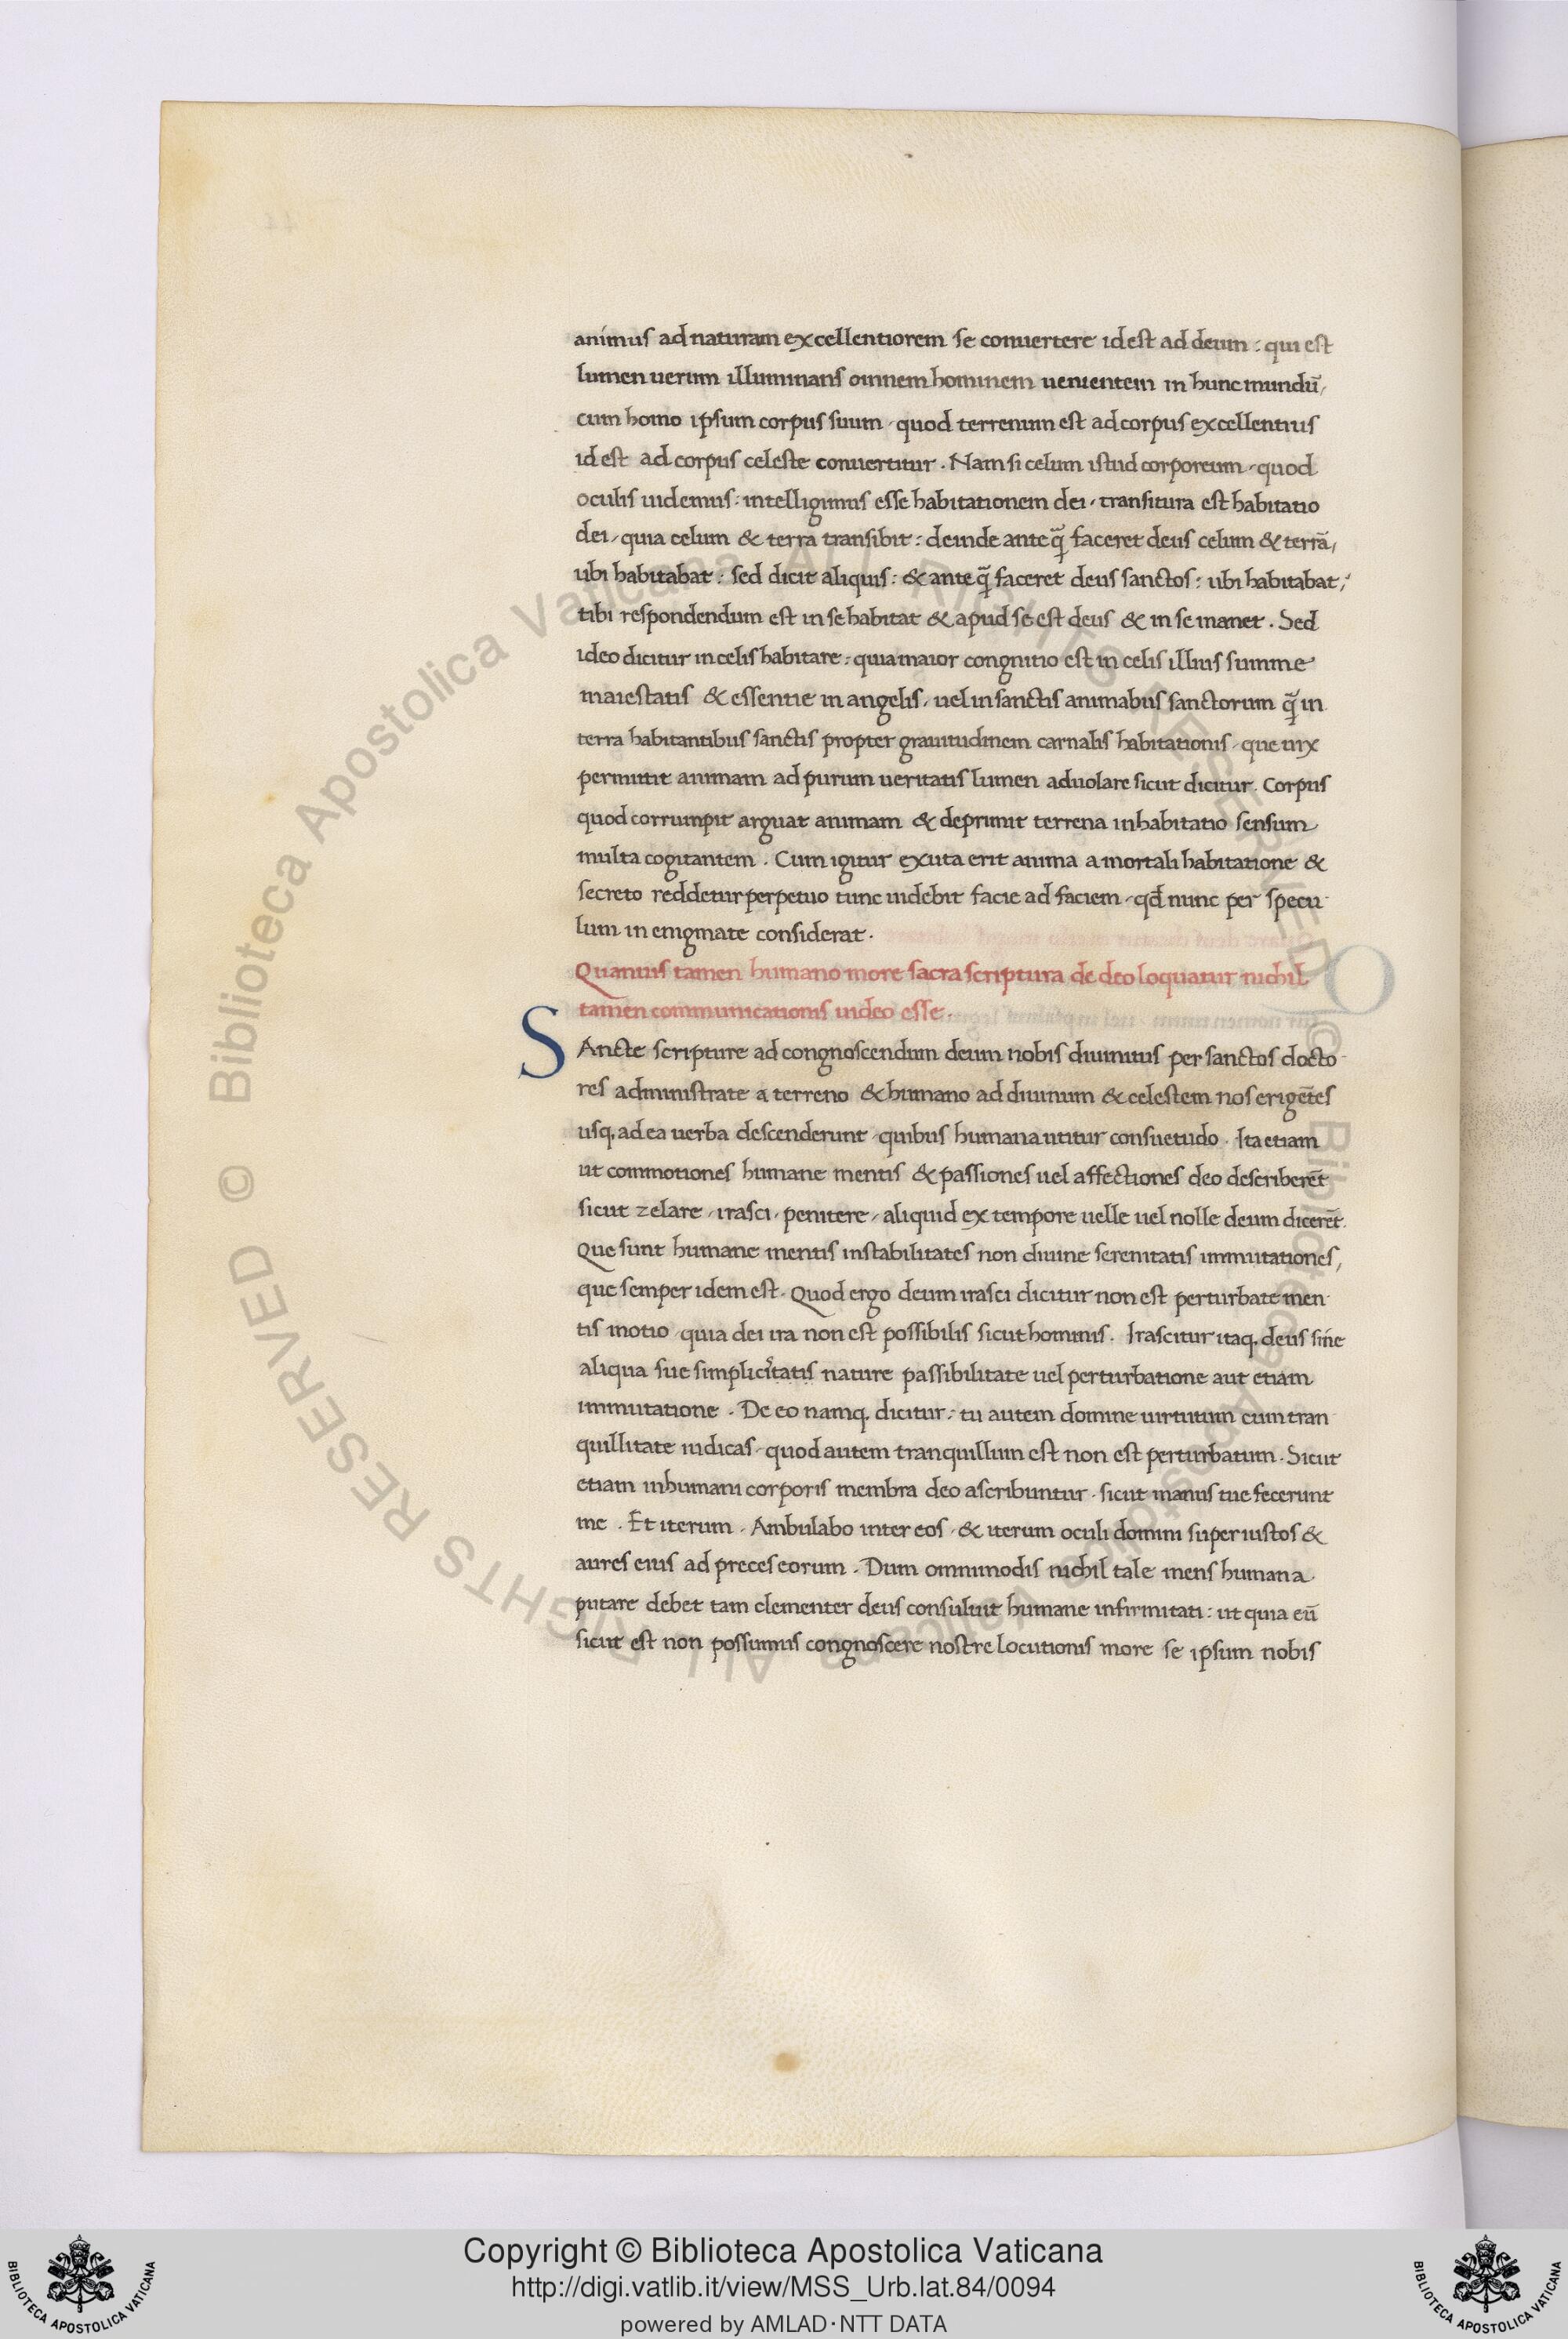 animus ad naturam excellentiorem se conuertere id est ad deum : qui est
lumen uerum illuminans omnem hominem uenientem in hunc mundū,
cum homo ipsum corpus suum , quod terrenum est ad corpus excellentius
id est ad corpus celeste conuertitur . Nam si celum istud corporeum , quod
oculis uidemus : intelligimus esse habitationem dei , transitura est habitatio
dei , quia celum & terrā transibit : deinde ante q̄ faceret deus celum & terrā,
ubi habitabat : sed dicit aliquis : & ante q̄ faceret deus sanctos : ubi habitabat ;
tibi respondendum est in se habitat & apud se est deus & in se manet . Sed
ideo dicitur in celis habitare : quia maior congnitio est in celis illius summe
maiestatis & essentie in angelis , uel in sanctis animabus sanctorum q̄ in
terra habitantibus sanctis propter grauitudinem carnalis habitationis , que uix
permittit animam ad purum ueritatis lumen aduolare sicut dicitur . Corpus
quod corrumpit arguat animam & deprimit terrena inhabitatio sensum
multa cogitantem . Cum igitur exuta erit anima a mortali habitatione &
secreto reddetur perpetuo tunc uidebit facie ad faciem , qd̄ nunc per specu
lum in enigmate considerat .
Quanuis tamen humano more sacra scriptura de deo loquatur nichil
tamen communicationis uideo esse .
SAncte scripture ad congnoscendum deum nobis diuinitus per sanctos docto
res administrate a terreno & humano ad diuinum & celestem nos erigētes
usq, ad ea uerba descenderunt , quibus humana utitur consuetudo . Ita etiam
ut commotiones humane mentis & passiones uel affectiones deo describerēt
sicut zelare , irasci , penitere , aliquid ex tempore uelle uel nolle deum dicerēt .
Que sunt humane mentis instabilitates non diuine serenitatis immutationes,
que semper idem est . Quod ergo deum irasci dicitur non est perturbate men
tis motio , quia dei ira non est possibilis sicut hominis . Irascitur itaq, deus sine
aliqua sue simplicitatis nature passibilitate uel perturbatione aut etiam
immutatione . De eo namq, dicitur : tu autem domine uirtutum cum tran
quillitate iudicas , quod autem tranquillum est non est perturbatum . Sicut
etiam inhumani corporis membra deo ascribuntur , sicut manus tue fecerunt
me . Et iterum . Ambulabo inter eos , & iterum oculi domini super iustos &
aures eius ad preces eorum . Dum omnimodis nichil tale mens humana
putare debet tam clementer deus consuluit humane infirmitati : ut quia eū
sicut est non possumus congnoscere nostre locutionis more se ipsum nobis
© Biblioteca Apostolica Vaticana ALL RIGHTS RESERVED
© Biblioteca Apostolica Vaticana ALL RIGHTS RESERVED
BIBLIOTECA APOSTOLICA VATICANA
Copyright © Biblioteca Apostolica Vaticana
http://digi.vatlib.it/view/MSS_Urb.lat.84/0094
powered by AMLAD·NTT DATA
BIBLIOTECA APOSTOLICA VATICANA